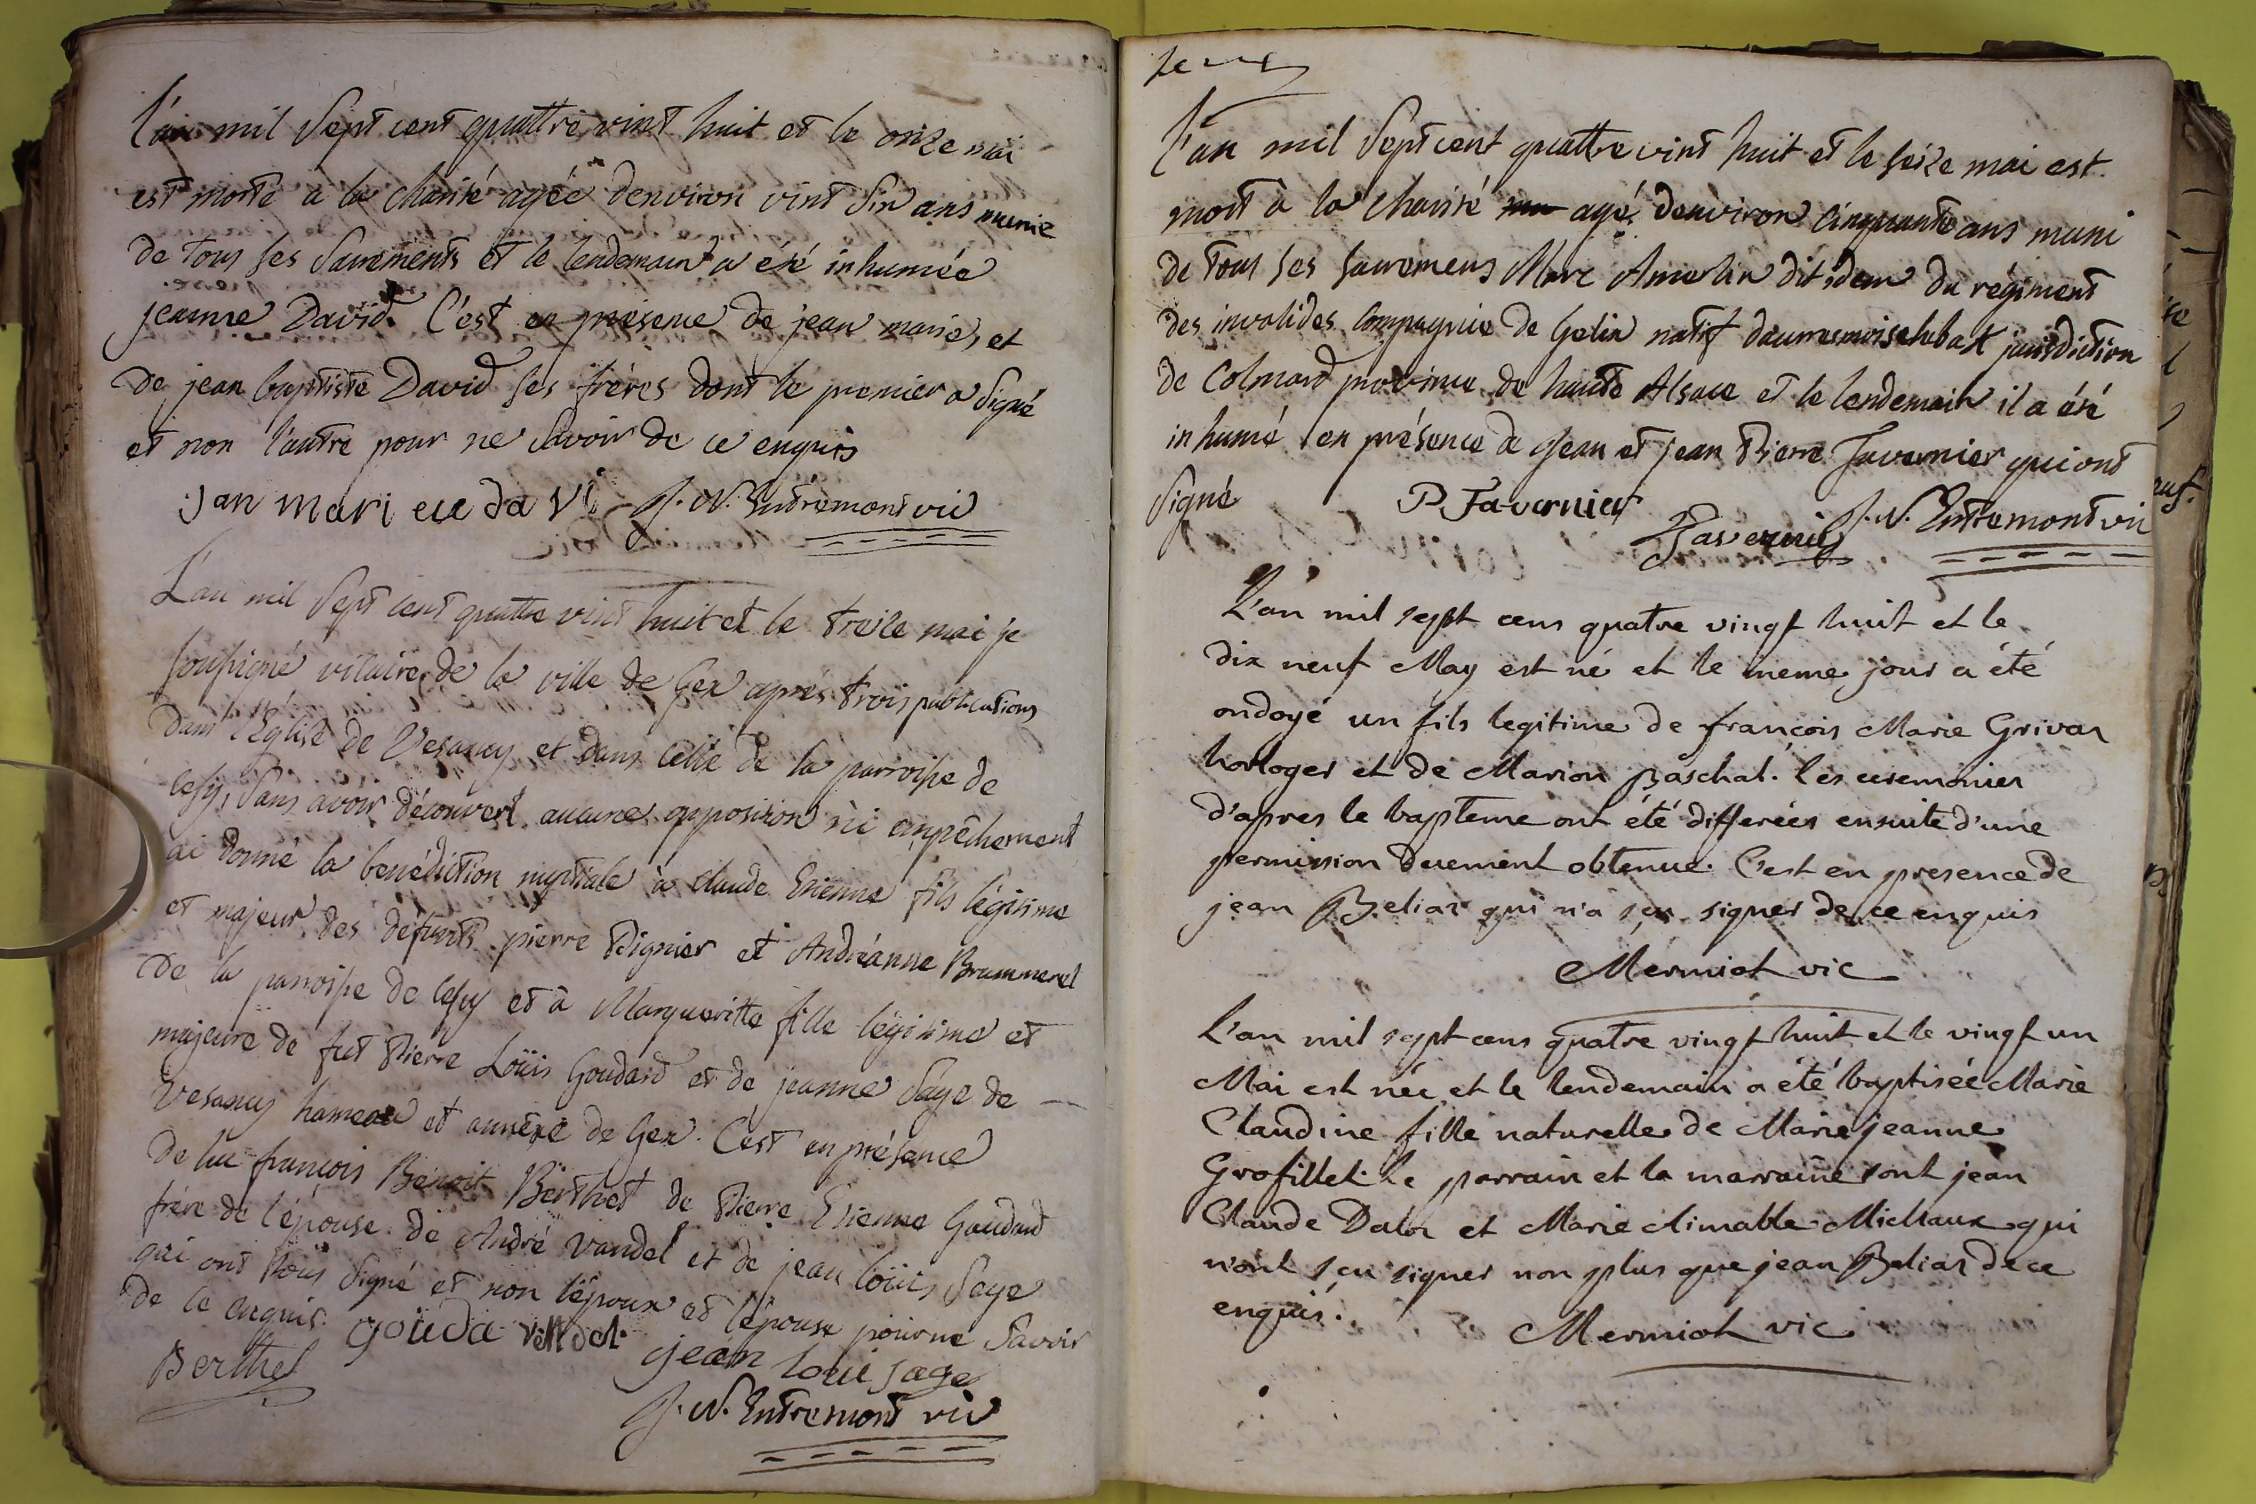 L'an mil sept cent quattre vint huit et le onze mai
est morte a la charité agée denviron vint six ans munie
de tous ses sacrements et le lendemain a été inhumée
jeanne David. C'est en présence de jean marie, et
de jean baptiste David ses frères dont le premier a signé
et non l'autre pour ne savoir de ce enquis
jan mari eue da vi J. N. Entremont vic
L'an mil sept cent quattre vint huit et le treize mai je
soussigné vicaire de la ville de Gex après trois publications
dans l'Eglise de Vesancy et dans celle de la parroisse de
Cessy, sans avoir découvert aucune opposition ni empêchement
ai donné la benédiction nuptiale à claude Etienne fils légitime
et majeur des défunts pierre Pignier et Andréanne Brummerel
de la parroisse de Cessy et à Margueritte fille légitime et
majeure de fut Pierre Loüis Goudard et de jeanne Saye de
Vesancy hameau et annexe de Gex. C'est en présence
de luc françois Benoit Berthet de Pierre Etienne Goudard
frère de l'épouse de André Vandel et de jean loüis Saye
qui ont tous signé et non l'époux et l'épouse pour ne savoir
de ce enquis. goüda vandel
Berthet jean loui sage
J. N. Entremont vic
L'an mil sept cent quattre vint huit et le seize mai est
mort a la charité agé denviron cinquante ans muni
de tous ses sacremens Marc Amerlin dit idem du régiment
des invalides compagnie de Gelin natif jurisdiction
de Colmard province de haute Alsace et le lendemain il a été
inhumé en présence de Jean et jean Pierre Tavernier qui ont
signé P. Tavernier J. N. Entremont vic
Tavernier
L'an mil sept cens quatre vingt huit et le
dix neuf May est né et le meme jour a été
ondoyé un fils legitime de françois Marie Grivas
horloger et de Marion Paschal. les ceremonies
d'apres le bapteme ont été differées ensuite d'une
permission duement obtenue. C'est en presence de
jean Belias qui n'a sçu signer de ce enquis
Mermiot vic
L'an mil sept cens quatre vingt huit et le vingt un
Mai est née et le lendemain a été baptisée Marie
Claudine fille naturelle de Marie jeanne
Grofillet. le parrain et la marraine sont jean
Claude Dalor et Marie Aimable Michaux qui
n'ont sçu signer non plus que jean Belias de ce
enquis.
Mermiot vic